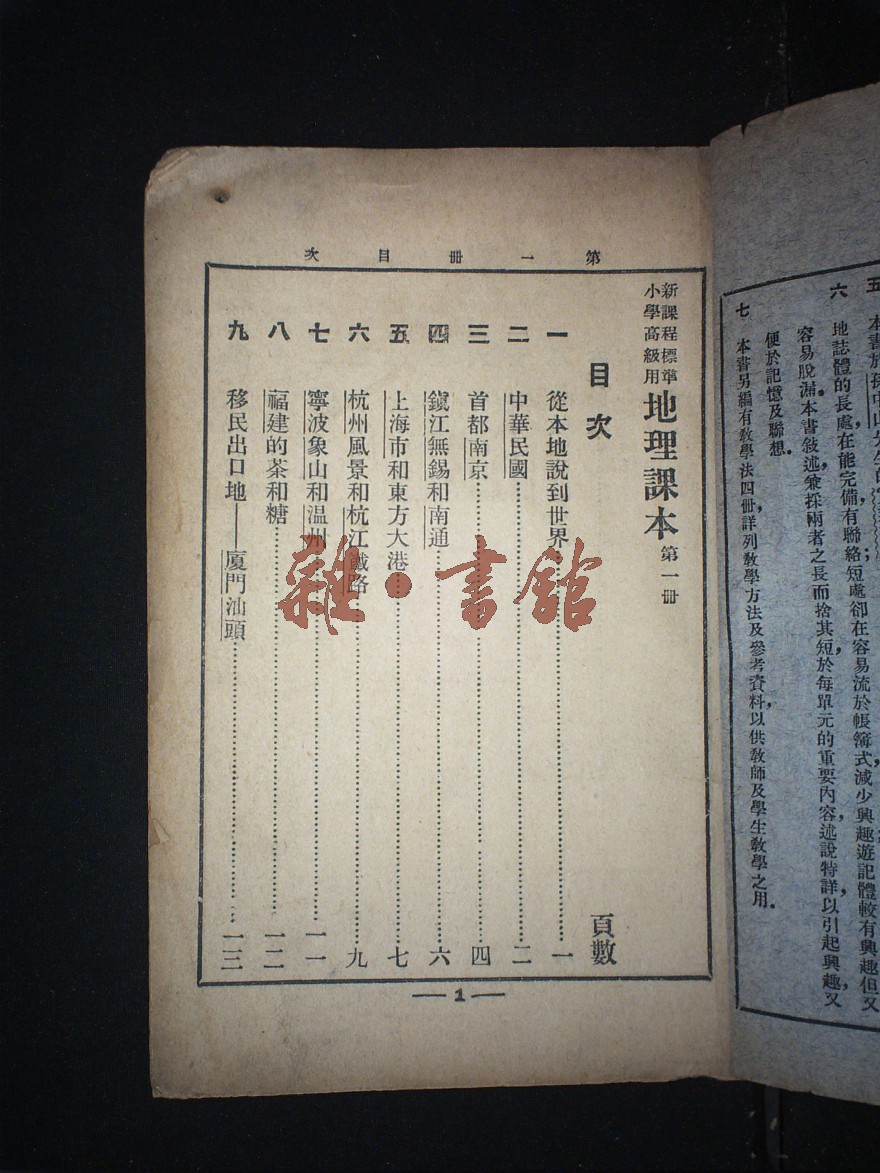 五
六 地誌體的長處在能完備有聯絡短處卻在容易流於帳簿式減少興趣遊記體較有興趣但又
容易脫漏本書敍述兼採兩者之長而捨其短於每單元的重要內容述說特詳以引起興趣又
便於記憶及聯想
七 本書另編有教學法四冊詳列教學方法及參考資料以供教師及學生教學之用
第一冊目次
新課程標準
小學高級用
地理課本 第一冊
目次 頁數
一 從本地說到世界……一
二 中華民國……二
三 首都南京……四
四 鎭江無錫和南通……六
五 上海市和東方大港……七
六 杭州風景和杭江鐵路……九
七 寧波象山和温州……一一
八 福建的茶和糖……一二
九 移民出口地——廈門汕頭……一三
—1—
雜·書館